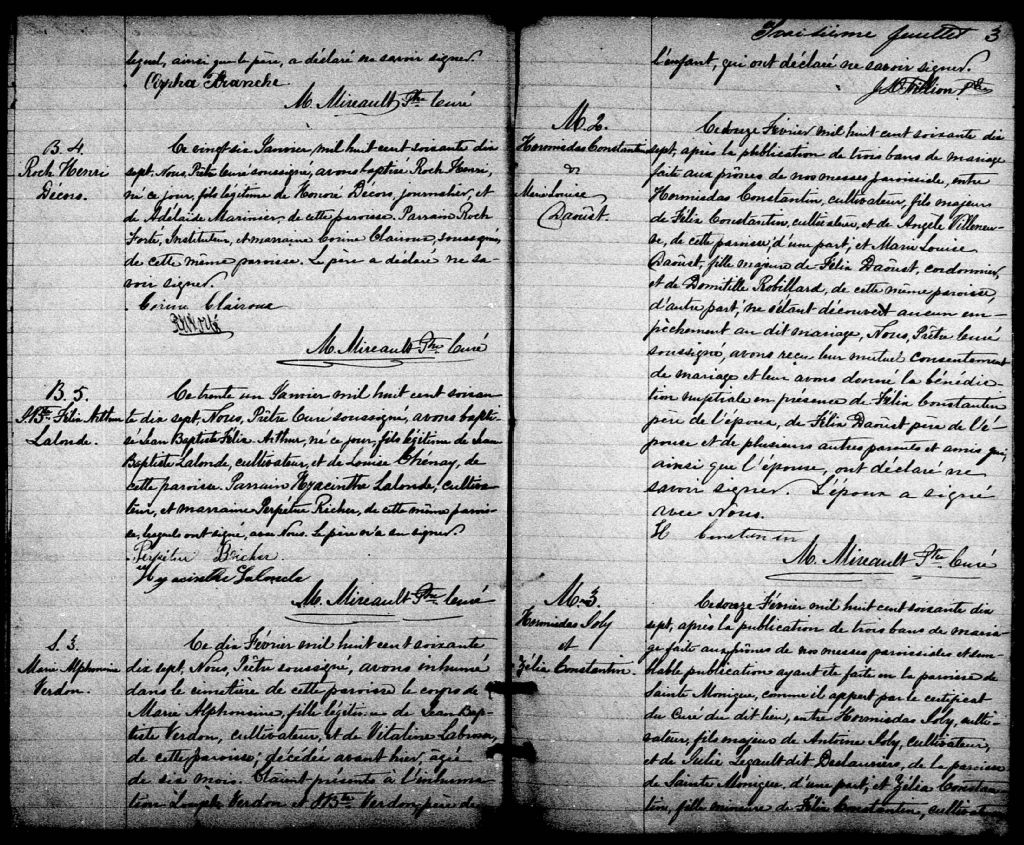 lequel, ainsi que le père, a déclaré ne savoir signer.
Orpha Branche
M. Mireault Ptre Curé
B. 4.
Roch Henri
Décors.
Ce vingt six Janvier mil huit cent soixante dix
sept, Nous Prêtre Curé soussigné, avons baptisé Roch Henri,
né ce jour, fils légitime de Honoré Décors, journalier, et
de Adélaïde Marinier, de cette paroisse. Parrain Roch
Forté, Instituteur, et marraine Corine Clairoux, soussignés,
de cette même paroisse. Le père a déclaré ne sa-
voir signer.
Corine Clairoux
M. Mireault Ptre Curé
B. 5.
J. Bte Félix Arthur
Lalonde.
Ce trente un Janvier mil huit cent soixan-
te dix sept, Nous, Prêtre Curé soussigné, avons bapti-
sé Jean Baptiste Félix Arthur, né ce jour, fils légitime de Jean
Baptiste Lalonde, cultivateur, et de Louise Chénay, de
cette paroisse. Parrain Hyacinthe Lalonde, cultiva-
teur, et marraine Perpétue Richer, de cette même parois-
se, lesquels ont signé, avec Nous. Le père n'a su signer.
Perpétue Richer
Hyacinthe Lalonde
M. Mireault Ptre Curé
S. 3.
Marie Alphonsine
Verdon.
Ce dix Février mil huit cent soixante
dix sept, Nous, Prêtre soussigné, avons inhumé
dans le cimetière de cette paroisse le corps de
Marie Alphonsine, fille légitime de Jean Bap-
tiste Verdon, cultivateur, et de Vitaline Labrosse,
de cette paroisse; décédée avant hier, âgée
de six mois. Étaient présents à l'inhuma-
tion Joseph Verdon et J. Bte Verdon, père de
Troisième feuillet 3
l'enfant, qui ont déclaré ne savoir signer.
M. 2.
Hormisdas Constantin
&
Marie Louise
Daoust.
Ce douze Février mil huit cent soixante dix
sept, après la publication de trois bans de mariage
faite aux prônes de nos messes paroissiales, entre
Hormisdas Constantin, cultivateur, fils majeur
de Félix Constantin, cultivateur, et de Angèle Villeneu-
ve, de cette paroisse, d'une part, et Marie Louise
Daoust, fille majeure de Félix Daoust, cordonnier,
et de Domitille Robillard, de cette même paroisse,
d'autre part; ne s'étant découvert aucun em-
pêchement au dit mariage, Nous, Prêtre Curé
soussigné, avons reçu leur mutuel consentement
de mariage et leur avons donné la bénédic-
tion nuptiale en présence de Félix Constantin
père de l'époux, de Félix Daoust père de l'é-
pouse et de plusieurs autres parents et amis qui,
ainsi que l'épouse, ont déclaré ne
savoir signer. L'époux a signé
avec Nous.
H Constantin
M. Mireault Ptre Curé
M. 3.
Hormisdas Joly
et
Zélia Constantin.
Ce douze Février mil huit cent soixante dix
sept, après la publication de trois bans de maria-
ge faite aux prônes de nos messes paroissiales et sem-
blable publication ayant été faite en la paroisse de
Sainte Monique, comme il appert par le certificat
du Curé du dit lieu, entre Hormisdas Joly, culti-
vateur, fils majeur de Antoine Joly, cultivateur,
et de Julie Legault dit Deslauriers, de la paroisse
de Sainte Monique, d'une part; et Zélia Constan-
tin, fille mineure de Félix Constantin, cultivateur